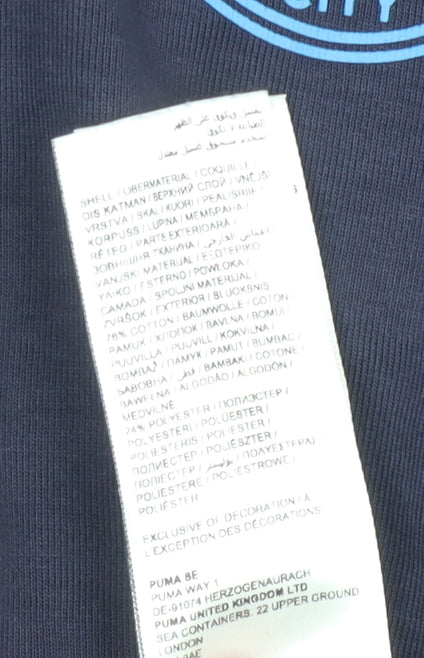 CITY
SHELL / OBERMATERIAL / COQUILLE /
DIŞ KATMAN / ВЕРХНИЙ СЛОЙ / VNĚJŠÍ
VRSTVA / SKAL / KUORI /
KORPUSS / LUPINA / МЕМБРАНА /
RÉTEG / PARTE EXTERIOARĂ /
ЗОВНІШНЯ ТКАНИНА /
VANJSKI MATERIJAL / ΕΞΩΤΕΡΙΚΟ
ΥΛΙΚΟ / ESTERNO / POWŁOKA /
CAMADA / SPOLJNI MATERIJAL /
ZVRŠOK / EXTERIOR / SLUOKSNIS
76% COTTON / BAUMWOLLE / COTON /
PAMUK / ХЛОПОК / BAVLNA / BOMULL /
PUUVILLA / PUUVILL / KOKVILNA /
BOMBAŽ / ПАМУК / PAMUT / BUMBAC /
БАВОВНА / قطن / ΒΑΜΒΑΚΙ / COTONE /
BAWEŁNA / ALGODÃO / ALGODÓN /
MEDVILNĖ
24% POLYESTER / ПОЛИЭСТЕР /
POLYESTERI / POLÜESTER /
POLIESTERIS / POLIESTER /
ПОЛИЕСТЕР / POLIÉSZTER /
ПОЛІЕСТЕР / بوليستر / ΠΟΛΥΕΣΤΕΡΑΣ /
POLIESTERE / POLIESTROWE /
POLIÉSTER
EXCLUSIVE OF DECORATION / À
L'EXCEPTION DES DÉCORATIONS
PUMA SE
PUMA WAY 1
DE-91074 HERZOGENAURACH
PUMA UNITED KINGDOM LTD
SEA CONTAINERS, 22 UPPER GROUND
LONDON